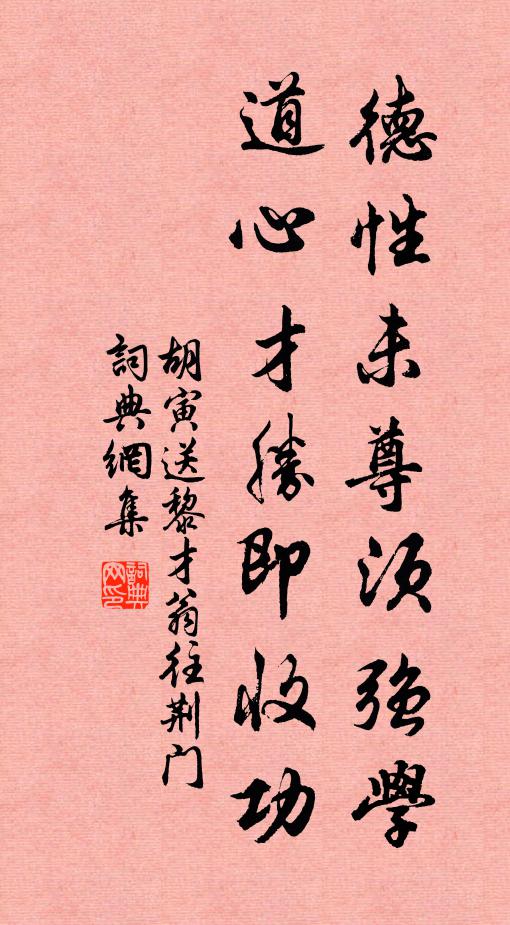 德性未尊須強學
道心才勝即收功
胡寅送黎才翁往荆门
詞典網集
詞典网印